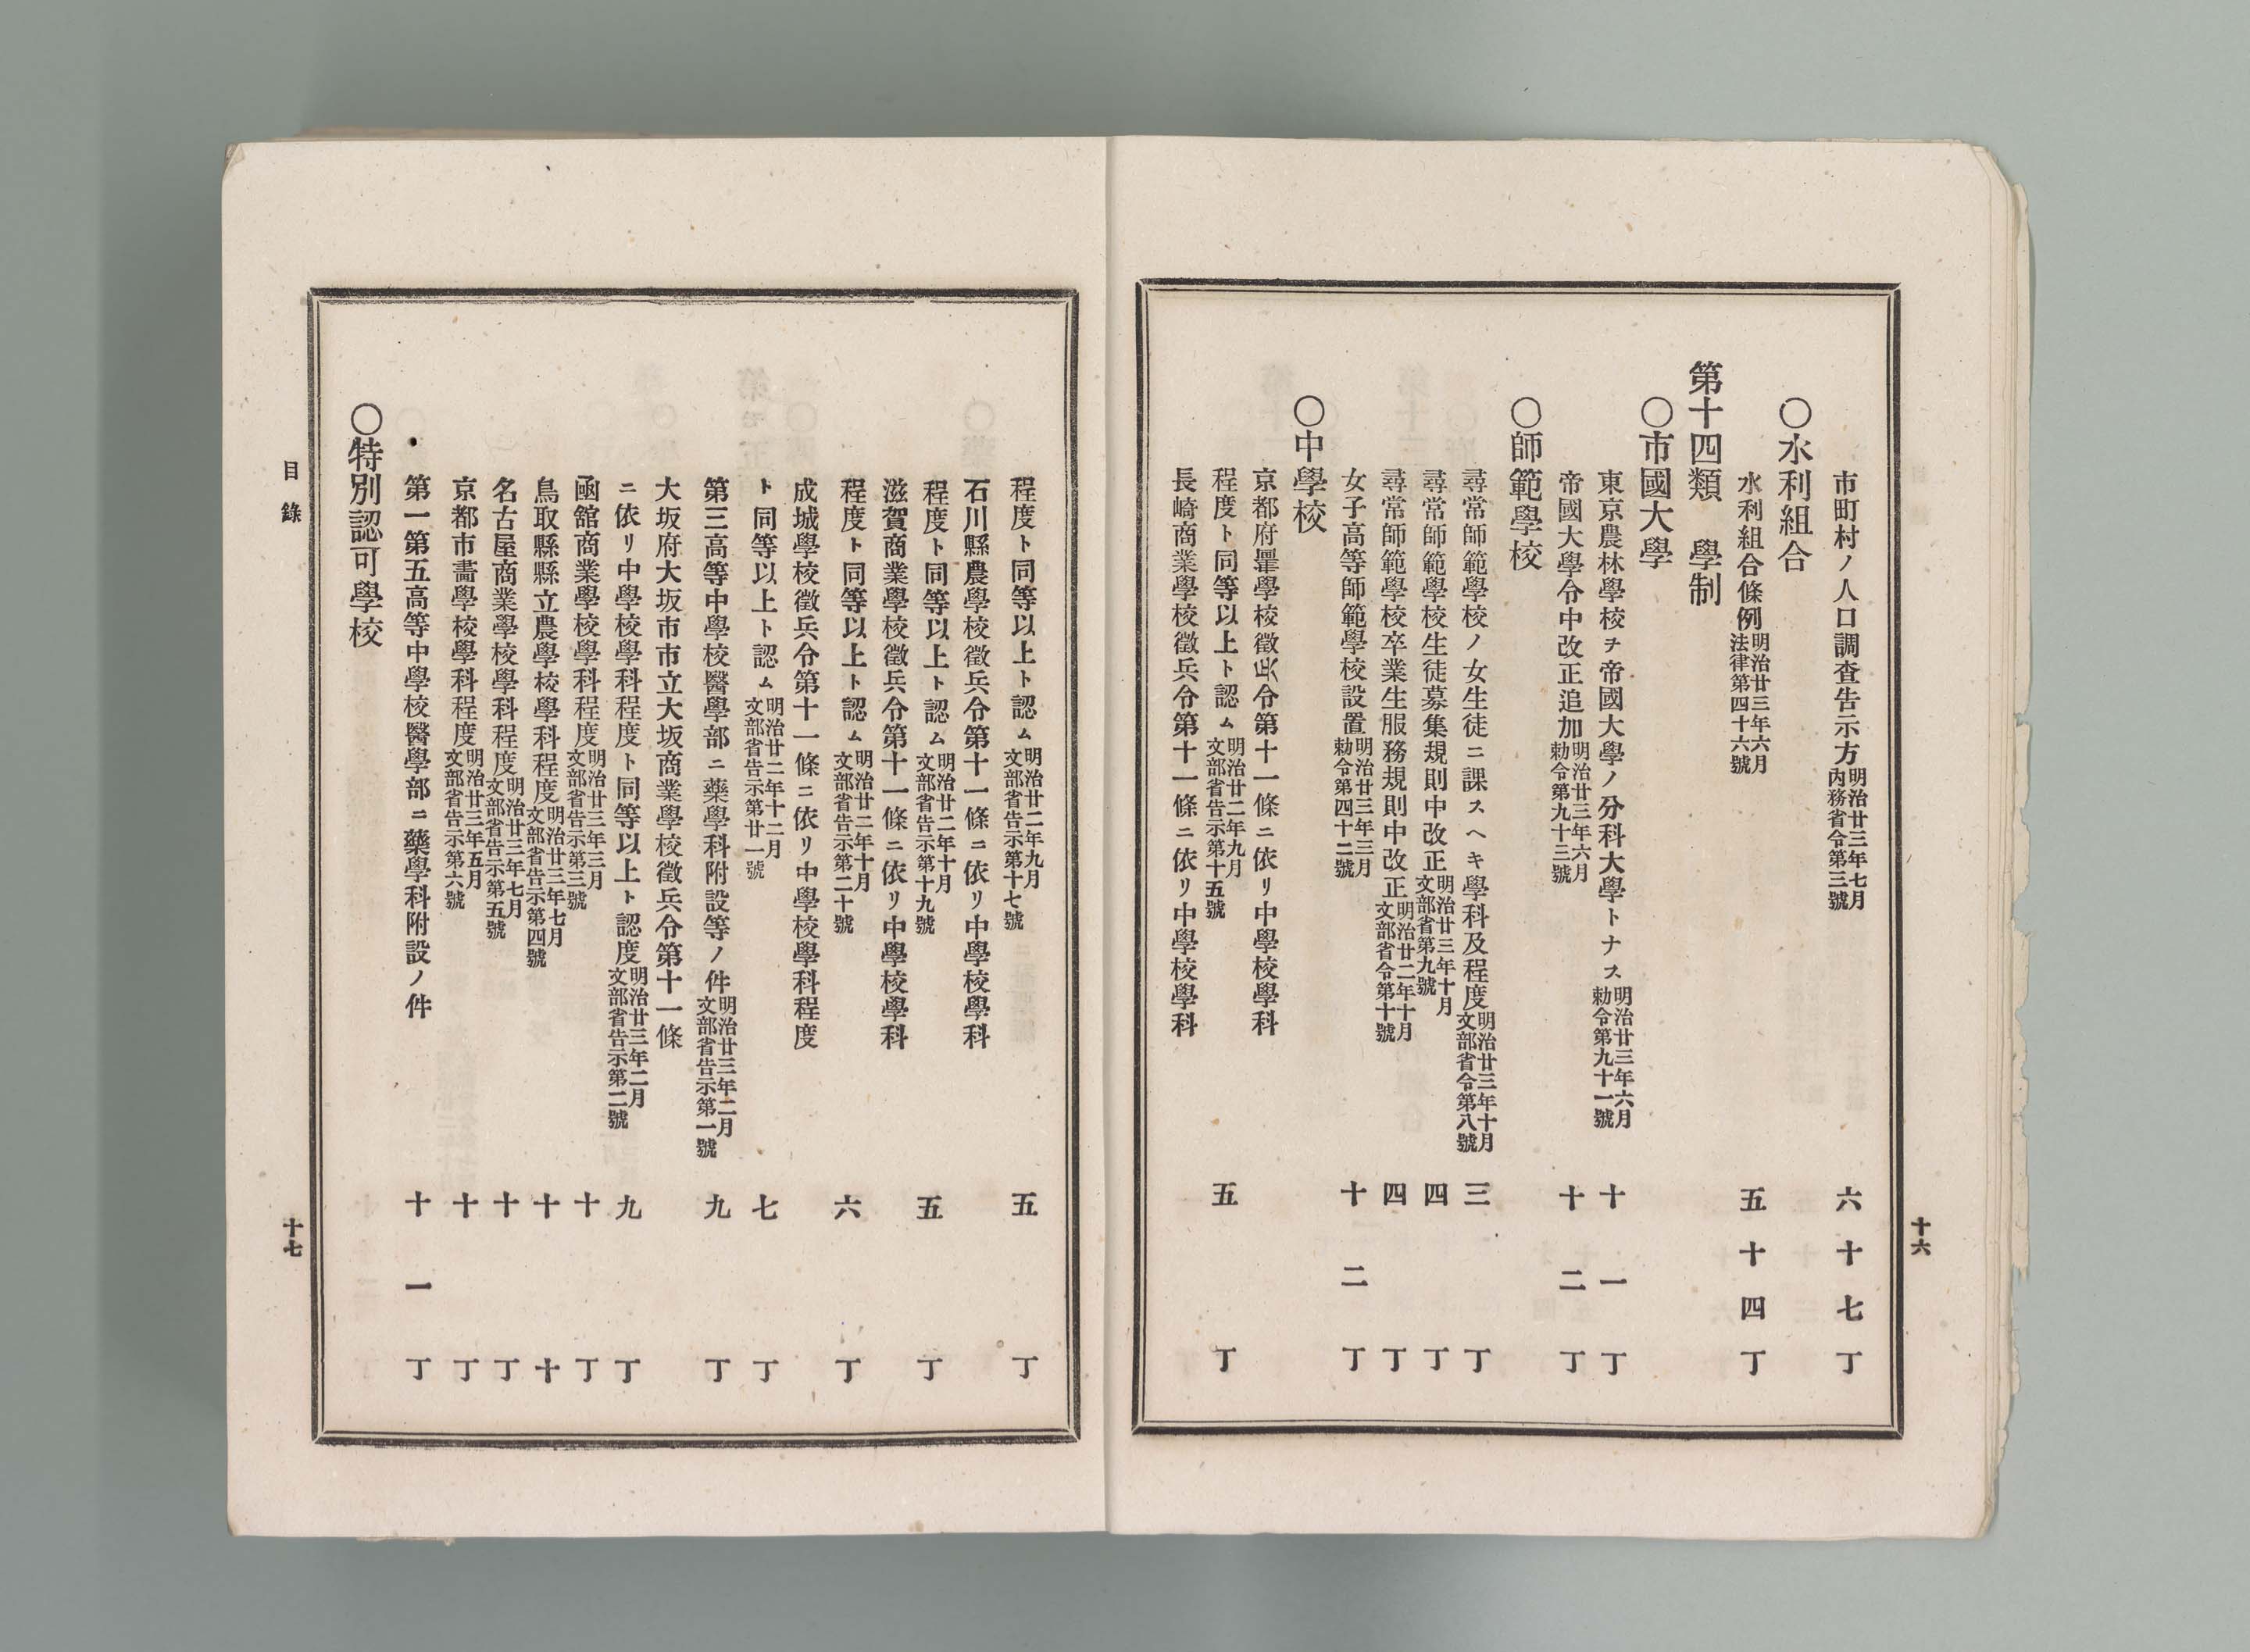 十六
市町村ノ人口調査告示方明治廿三年七月內務省令第三號 六十七丁
〇水利組合
水利組合條例明治廿三年六月法律第四十六號 五十四丁
第十四類 學制
〇市國大學
東京農林學校ヲ帝國大學ノ分科大學トナス明治廿三年六月勅令第九十一號 十一丁
帝國大學令中改正追加明治廿三年六月勅令第九十三號 十二丁
〇師範學校
尋常師範學校ノ女生徒ニ課スヘキ學科及程度明治廿三年十月文部省令第八號 三丁
尋常師範學校生徒募集規則中改正明治廿三年十月文部省第九號 四丁
尋常師範學校卒業生服務規則中改正明治廿二年十月文部省令第十號 四丁
女子高等師範學校設置明治廿三年三月勅令第四十二號 十二丁
〇中學校
京都府學校徵令第十一條ニ依リ中學校學科
程度ト同等以上ト認ム明治廿二年九月文部省告示第十五號 五丁
長崎商業學校徵兵令第十一條ニ依リ中學校學科
程度ト同等以上ト認ム明治廿二年九月文部省告示第十七號 五丁
石川縣農學校徵兵令第十一條ニ依リ中學校學科
程度ト同等以上ト認ム明治廿二年十月文部省告示第十九號 五丁
滋賀商業學校徵兵令第十一條ニ依リ中學校學科
程度ト同等以上ト認ム明治廿二年十月文部省告示第二十號 六丁
成城學校徵兵令第十一條ニ依リ中學校學科程度
ト同等以上ト認ム明治廿二年十二月文部省告示第廿一號 七丁
第三高等中學校醫學部ニ藥學科附設等ノ件明治廿三年二月文部省告示第一號 九丁
大坂府大坂市市立大坂商業學校徵兵令第十一條
ニ依リ中學校學科程度ト同等以上ト認度明治廿三年二月文部省告示第二號 九丁
函舘商業學校學科程度明治廿三年三月文部省告示第三號 十丁
鳥取縣縣立農學校學科程度明治廿三年七月文部省告示第四號 十十
名古屋商業學校學科程度明治廿三年七月文部省告示第五號 十丁
京都市畵學校學科程度明治廿三年五月文部省告示第六號 十丁
第一第五高等中學校醫學部ニ藥學科附設ノ件 十一丁
〇特別認可學校
目錄 十七